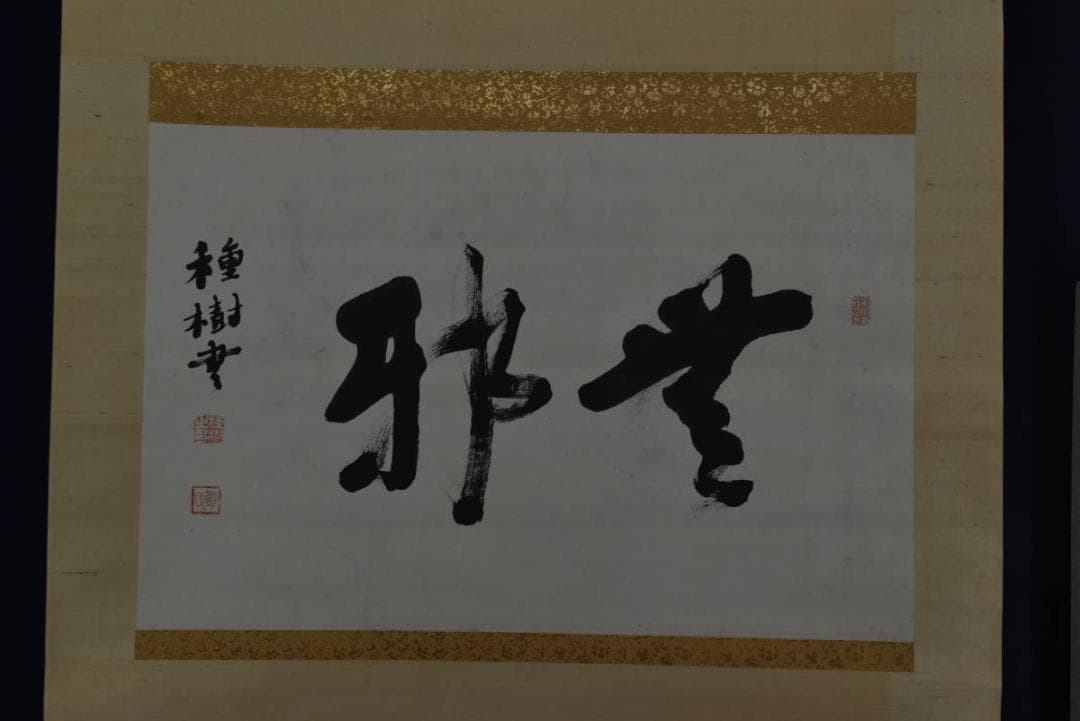 無邪
種樹書